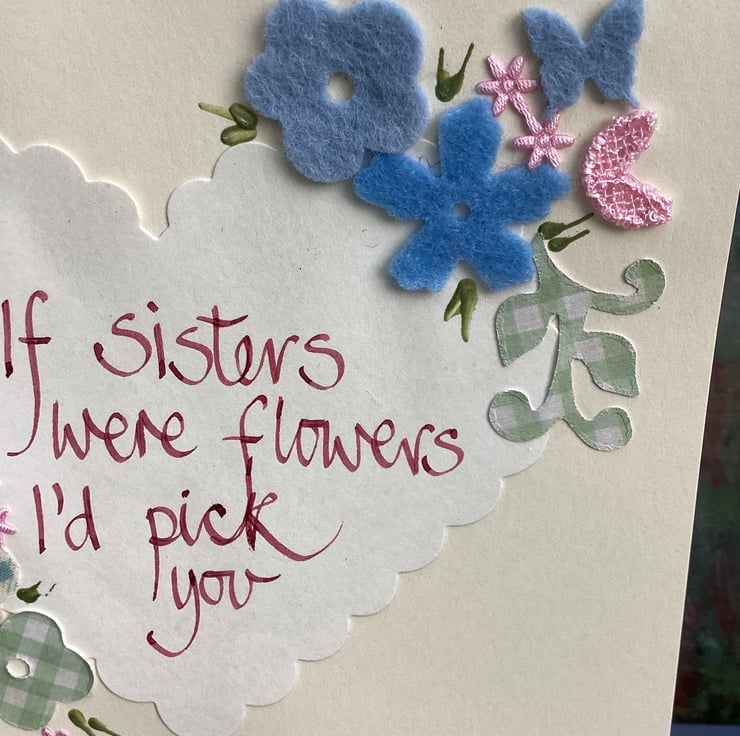 If sisters
were flowers
I'd pick
you